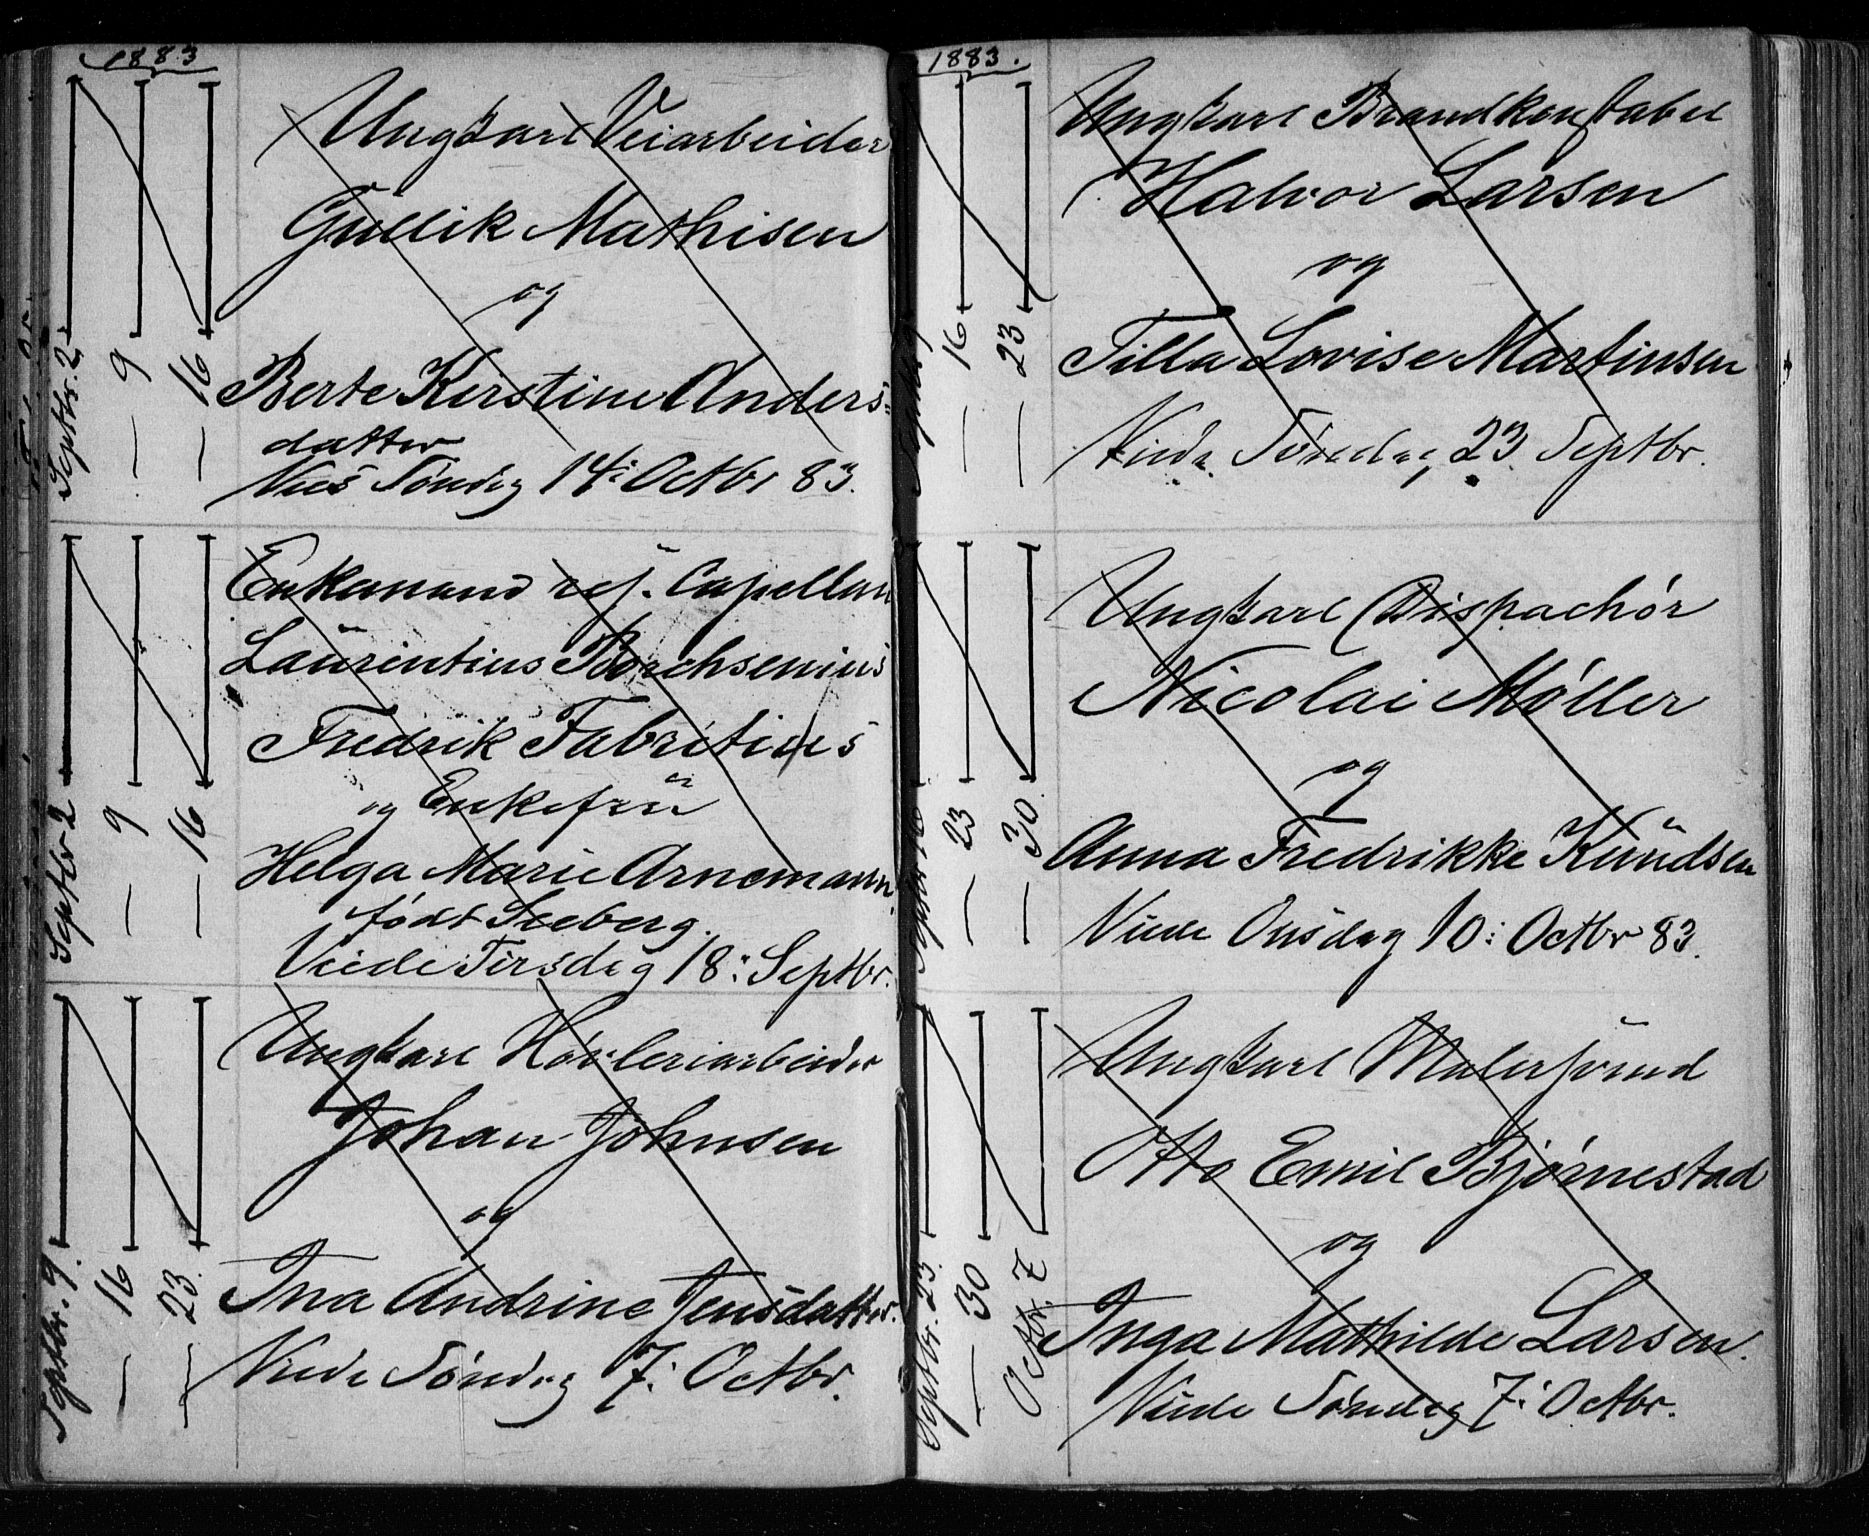 1883
Septbr. 2.
— 9
— 16
Ungkarl Veiarbeider
Gullik Mathisen
og
Berte Kirstine Anders=
datter
Vies Søndag 14: Octbr 83.
Septbr 2
— 9
— 16
Enkemand res. Capellan
Laurentius Borchsenius
Fredrik Fabritius
og Enkefru
Helga Marie Arnemann
født Seeberg.
Viede Tirsdag 18: Septbr.
Septbr. 9.
— 16
— 23.
Ungkarl Høvleriarbeider
Johan Johnsen
og
Ina Andrine Jensdatter.
Viede Søndag 7: Octbr.
1883.
— 16
— 23
Ungkarl Brandkonstabel
Halvor Larsen
og
Tilla Lovise Martinsen
Viede Søndag 23 Septbr.
Septbr 16
— 23
— 30
Ungkarl Dispachør
Nicolai Møller
og
Anna Fredrikke Knudsen
Viede Onsdag 10: Octbr 83.
Septbr. 23.
— 30
Octbr. 7
Ungkarl Malersvend
Otto Emil Bjørnestad
og
Inga Mathilde Larsen.
Viede Søndag 7: Octbr.